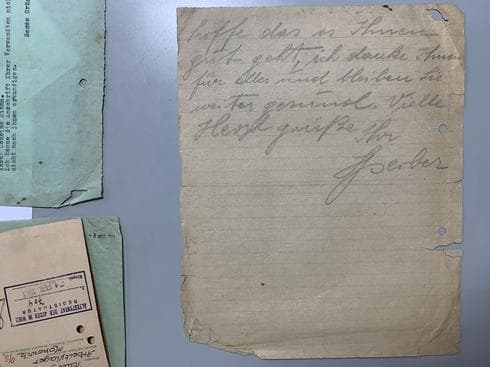 hoffe das es Ihnen
gut geht, ich danke Ihnen
für alles und bleiben Sie
weiter gesund. Vielle
Herzl grüße Ihr
Sperber
Ich kenne die Anschrift ihrer Verwandten nicht
nicht nach ihnen erkundigen.
Beste Grüs
ÄLTESTENRAT DER JUDEN IN WIEN
REGISTRATUR
Eingel.
704
Arbeitslager